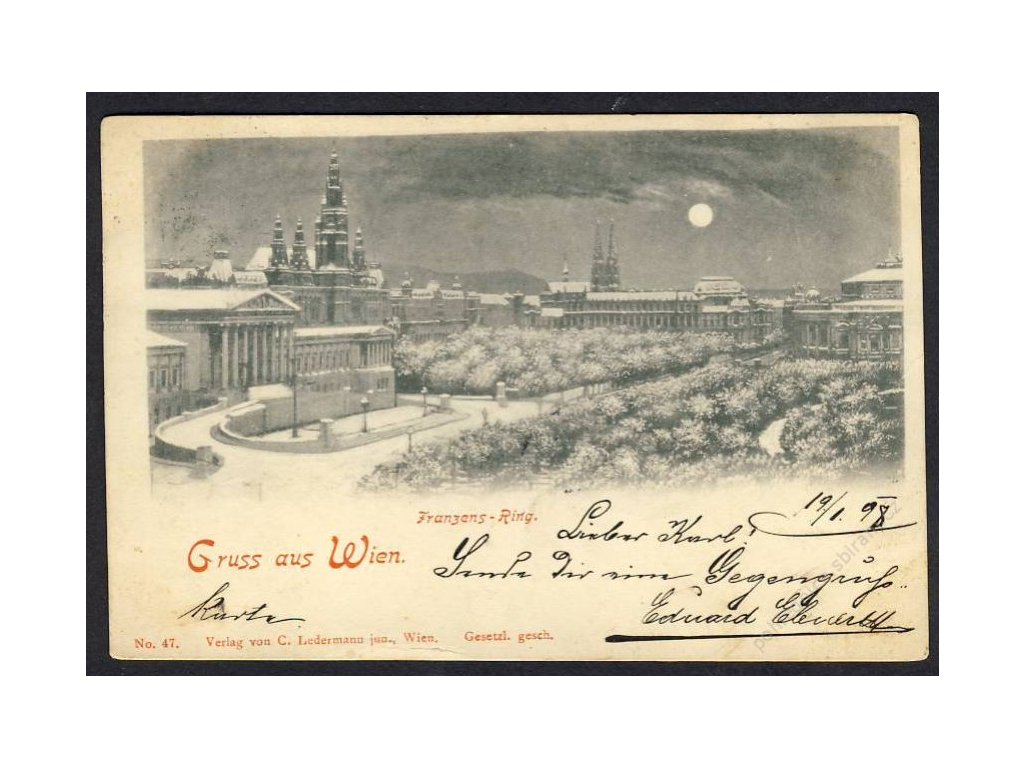 19/1. 98
Franzens-Ring.
Lieber Karl!
Gruss aus Wien.
Sende Dir eine Gegengruß..
Karte
Eduard
No. 47. Verlag von C. Ledermann jun., Wien. Gesetzl. gesch.